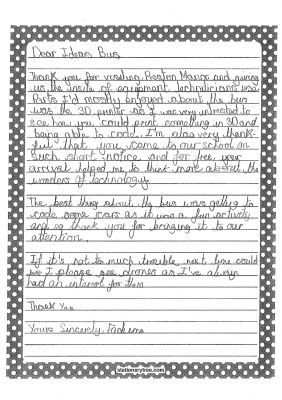 Dear Ideas Bus,
Thank you for visiting Preston Manor and giving
us the insite of equipment technicians use.
Parts I'd mostly enjoyed about the bus
was the 3D printer as I was very intrested to
see how you could print something in 3D and
being able to code. I'm also very thank-
full that you came to our school on
such short notice and for free, your
arrival helped me to think more about the
wonders of technology.
The best thing about the bus was getting to
code some cars as it was a fun activity
and so thank you for bringing it to our
attention.
If it's not to much trouble, next time could
I please see drones as I've always
had an interest for them
Thank You
Yours Sincerely,
stationerytree.com